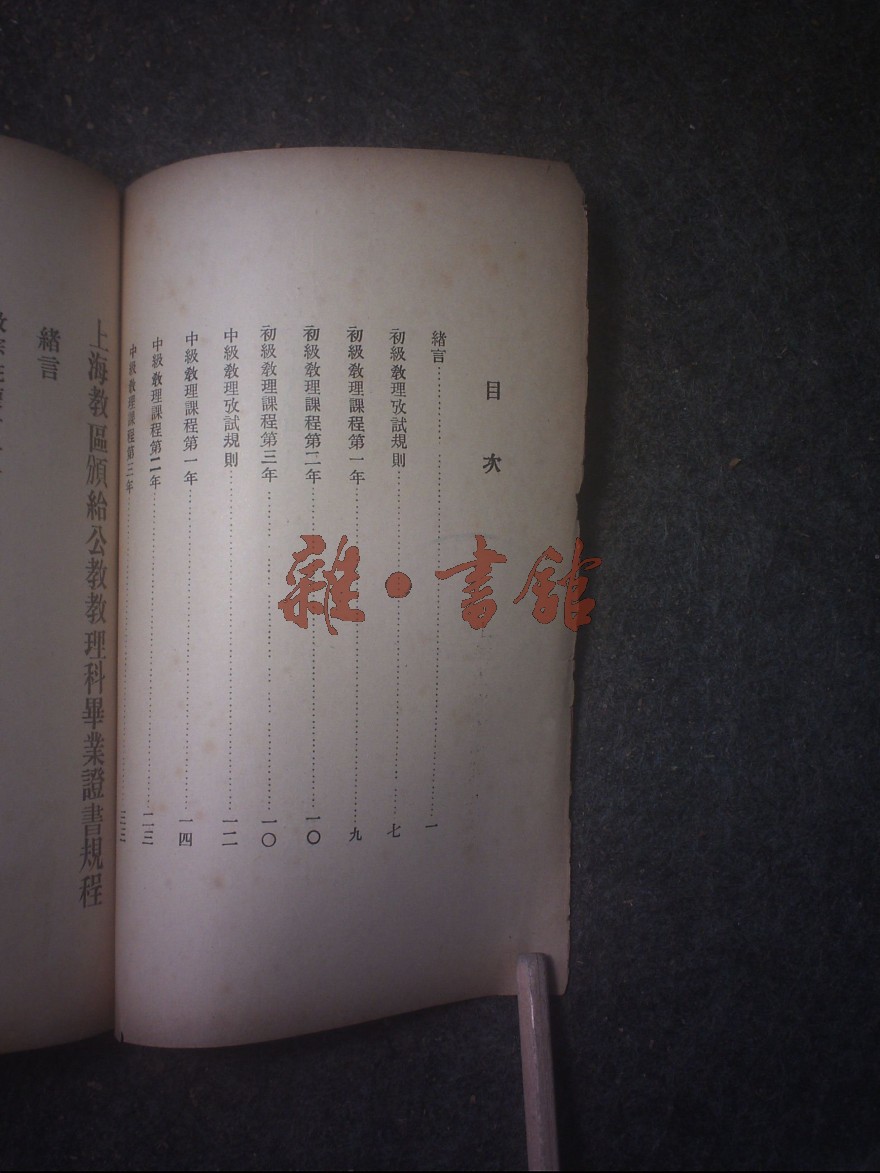 目次
緒言……一
初級教理攷試規則……七
初級教理課程第一年……九
初級教理課程第二年……一〇
初級教理課程第三年……一〇
中級教理攷試規則……一二
中級教理課程第一年……一四
中級教理課程第二年……二三
中級教理課程第三年……
上海教區頒給公教教理科畢業證書規程
緒言
雜·書館